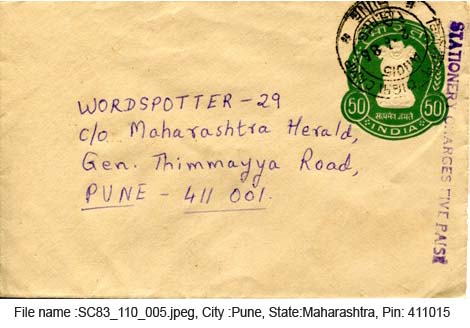 50
सत्यमेव जयते
INDIA
50
STATIONERY CHARGES FIVE PAISE
WORDSPOTTER - 29
c/o Maharashtra Herald,
Gen. Thimmayya Road,
PUNE - 411 001.
File name :SC83_110_005.jpeg, City :Pune, State:Maharashtra, Pin: 411015